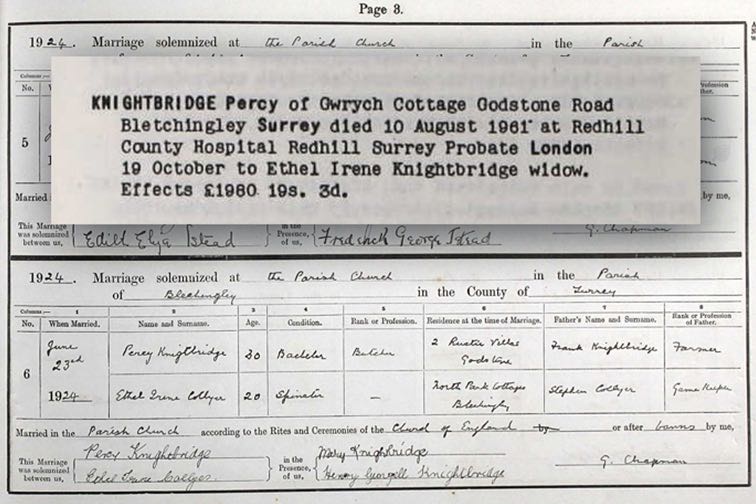 Page 3.
1924. Marriage solemnized at the Parish Church in the Parish
Columns:—
No.
5
KNIGHTBRIDGE Percy of Gwrych Cottage Godstone Road
Bletchingley Surrey died 10 August 1961 at Redhill
County Hospital Redhill Surrey Probate London
19 October to Ethel Irene Knightbridge widow.
Effects £1960 19s. 3d.
Married in
by me,
This Marriage was solemnized between us, Edith Eliza Istead in the Presence of us, Frederick George Istead G. Chapman
1924. Marriage solemnized at the Parish Church in the Parish
of Blechingley in the County of Surrey
Columns:— 1 2 3 4 5 6 7 8
No. When Married. Name and Surname. Age. Condition. Rank or Profession. Residence at the time of Marriage. Father's Name and Surname. Rank or Profession of Father.
6 June 23rd 1924 Percy Knigtbridge 30 Bachelor Butcher 2 Villas Godstone Frank Knightbridge Farmer
Ethel Irene Collyer 20 Spinster — North Park Cottages Blechingley Stephen Collyer Game Keeper
Married in the Parish Church according to the Rites and Ceremonies of the Church of England by or after banns by me,
This Marriage was solemnized between us, Percy Knightbridge Ethel Irene Collyer in the Presence of us, Mary Knightbridge Henry Knightbridge G. Chapman